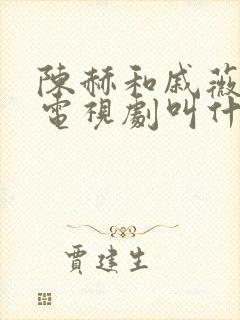 陳赫和戚薇
電視劇叫什
賈建生